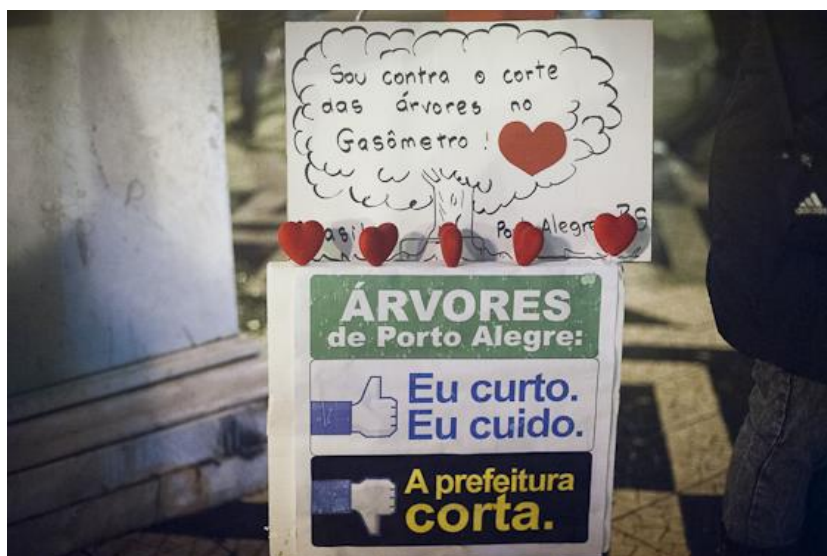 Sou contra o corte
das árvores no
Gasômetro!
Porto Alegre RS
ÁRVORES
de Porto Alegre:
Eu curto.
Eu cuido.
A prefeitura
corta.
adidas